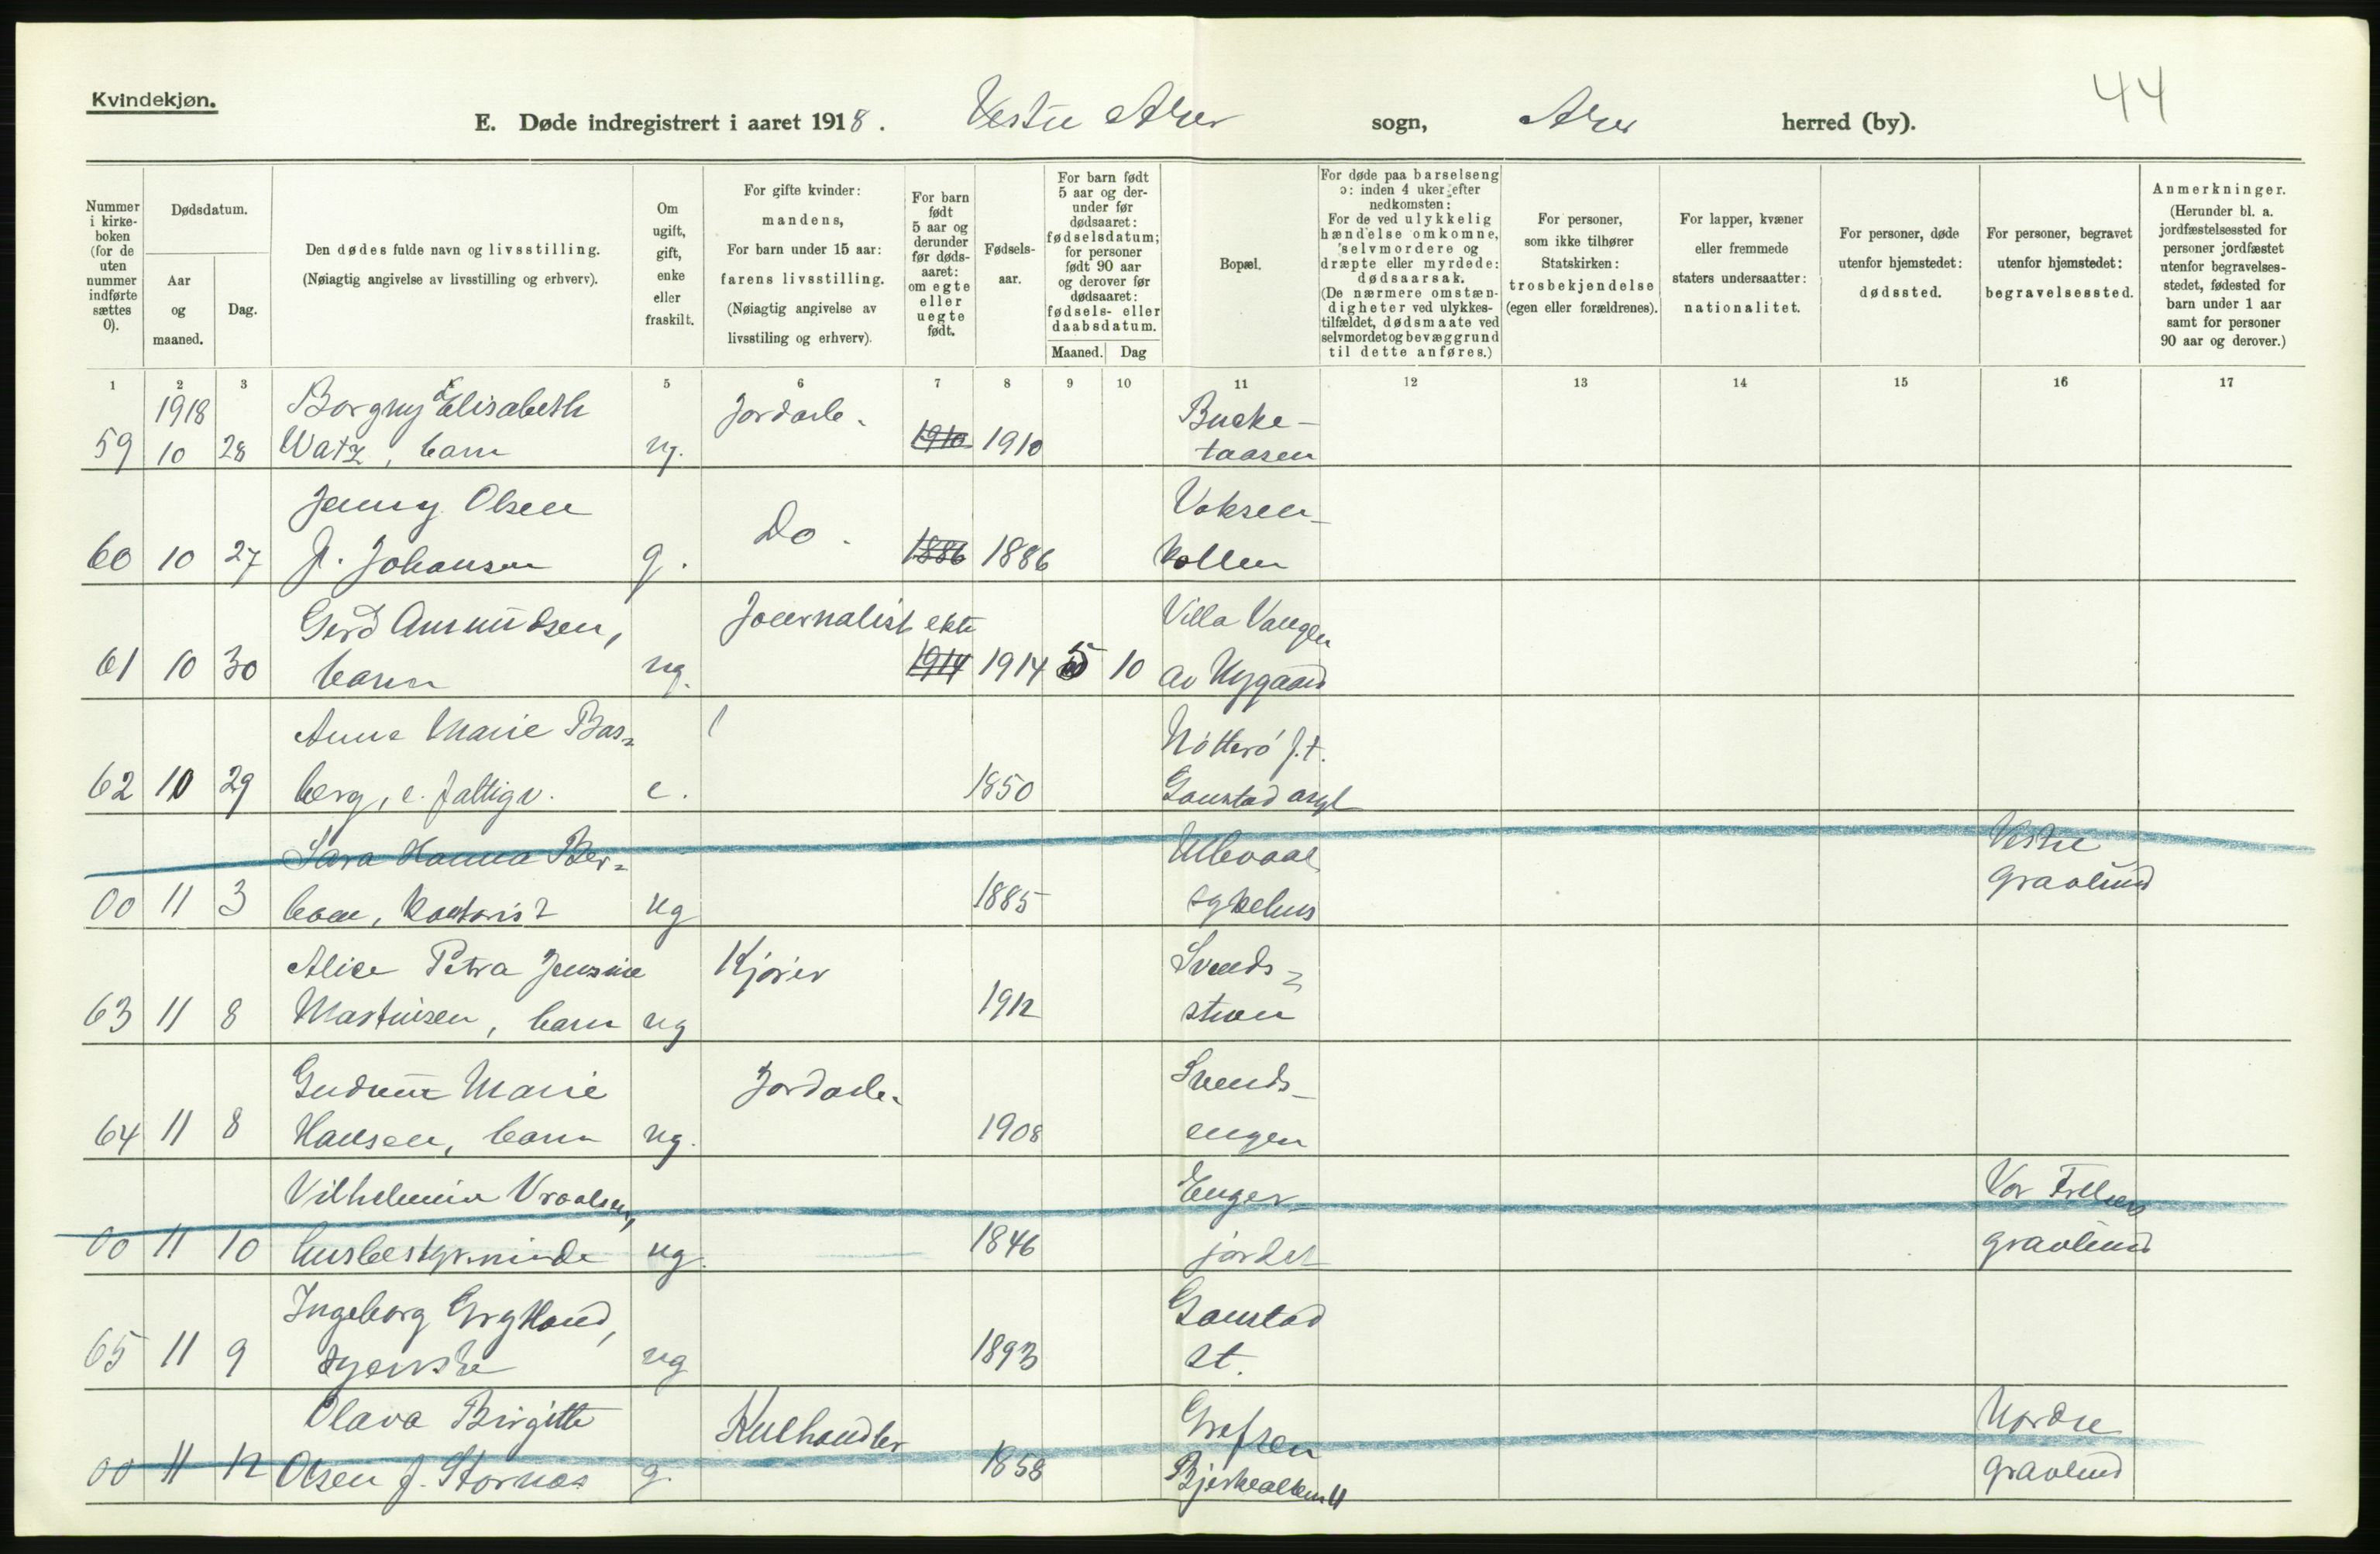 Kvindekjøn.
44
E. Døde indregistrert i aaret 1918. Vestre Aker sogn, Aker herred (by).
Nummer i kirkeboken (for de uten nummer indførte sættes 0).
Dødsdatum.
Aar og maaned.
Dag.
Den dødes fulde navn og livsstilling.
(Nøiagtig angivelse av livsstilling og erhverv).
Om ugift, gift, enke eller fraskilt.
For gifte kvinder: mandens,
For barn under 15 aar: farens livsstilling.
(Nøiagtig angivelse av livsstiling og erhverv).
For barn født 5 aar og derunder før dødsaaret: om egte eller uegte født.
Fødselsaar.
For barn født 5 aar og derunder før dødsaaret: fødselsdatum; for personer født 90 aar og derover før dødsaaret: fødsels- eller daabsdatum.
Maaned. Dag
Bopæl.
For døde paa barselseng ɔ: inden 4 uker efter nedkomsten:
For de ved ulykkelig hændelse omkomne, selvmordere og dræpte eller myrdede: dødsaarsak.
(De nærmere omstændigheter ved ulykkestilfældet, dødsmaate ved selvmordet og bevæggrund til dette anføres.)
For personer, som ikke tilhører Statskirken: trosbekjendelse (egen eller forældrenes).
For lapper, kvæner eller fremmede staters undersaatter: nationalitet.
For personer, døde utenfor hjemstedet: dødssted.
For personer, begravet utenfor hjemstedet: begravelsessted.
Anmerkninger.
(Herunder bl. a. jordfæstelsessted for personer jordfæstet utenfor begravelsesstedet, fødested for barn under 1 aar samt for personer 90 aar og derover.)
1 2 3 5 6 7 8 9 10 11 12 13 14 15 16 17
1918 Borgny Elisabeth Jordarb. Bakke-
59 10 28 Watz, barn ug. 1910 1910 taasen
Jenny Olsen Do. Voksen-
60 10 27 f. Johansen g. 1886 1886 kollen
Gerd Amundsen, Journalist ekte Villa Vangen
61 10 30 barn ug. 1914 1914 5 10 av Nygaard
Anne Marie Bas-
Nøtterø f.t.
62 10 29 berg, e. fattigv. e. 1850 Gaustad asyl
Sara Hanna Ber- Ullevaal Vestre
00 11 3 kontorist ug 1885 sykehus gravlund
Alice Petra Jensine Kjører Svends-
63 11 8 Martinsen, barn ug 1912 stuen
Gudrun Marie Jordarb. Svends-
64 11 8 Hansen, barn ug. 1908 engen
Vilhelmine Vraalsen, Enger- Vor Frelsers
00 11 10 husbestyrerinde ug. 1846 jordet gravlund
Ingeborg Grytland, Gaustad
65 11 9 tjenske ug 1893 st.
Olava Birgitte Kulhandler Grefsen Nordre
00 11 12 Olsen f. Stornes g. 1858 Bjerkealleen 11 gravlund